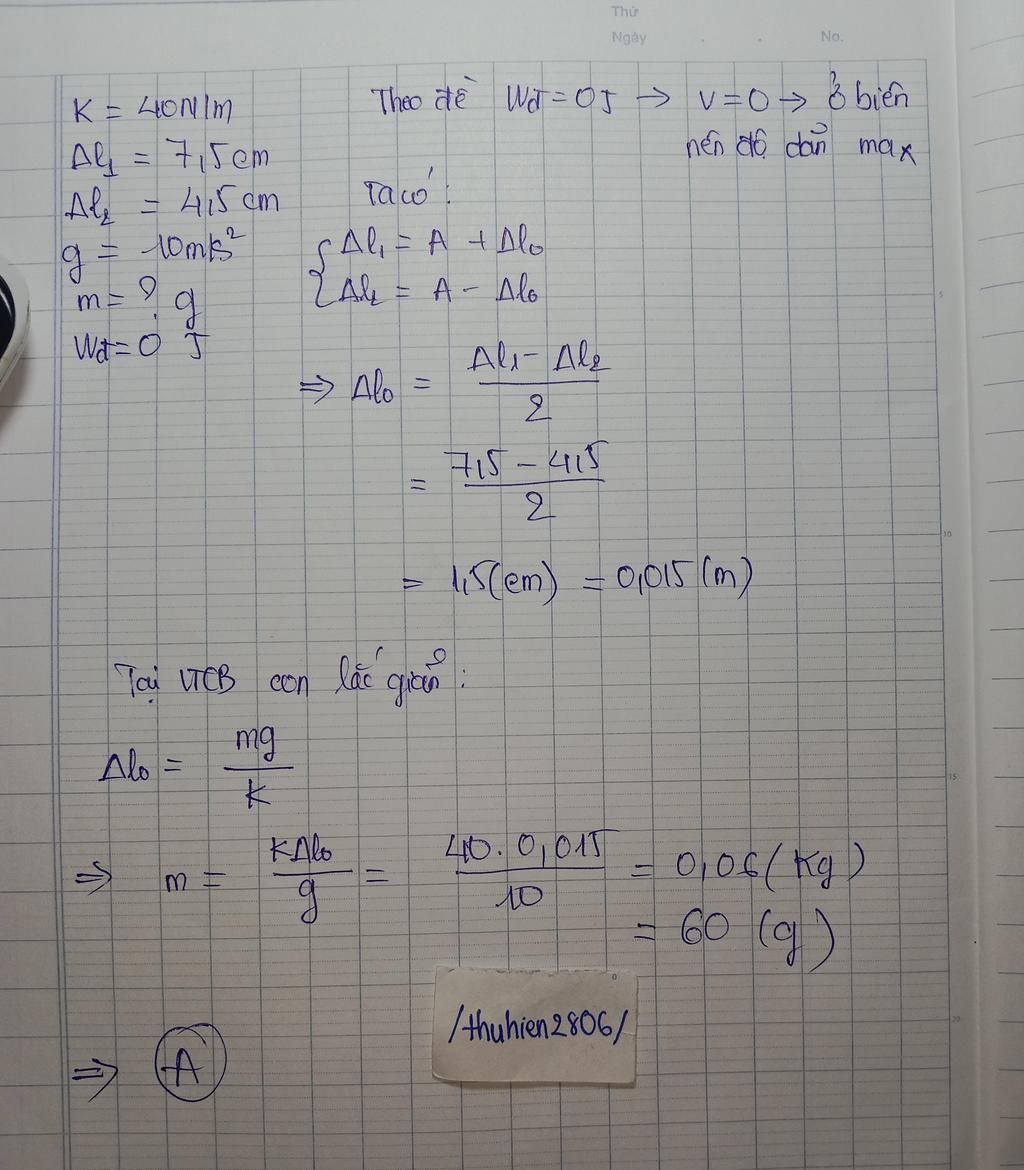 Thứ
Ngày . . No.
K = 40N/m
Δl₁ = 7,5cm
Δl₂ = 4,5cm
g = 10m/s²
m = ? g
Wđ = 0 J
Theo đề Wđ = 0J → v = 0 → ở biên
nên độ dãn max
Ta có:
{ Δl₁ = A + Δl₀
{ Δl₂ = A - Δl₀
⇒ Δl₀ = (Δl₁ - Δl₂)/2
= (7,5 - 4,5)/2
= 1,5(cm) = 0,015(m)
Tại VTCB con lắc giãn:
Δl₀ = mg/K
⇒ m = KΔl₀/g = 40. 0,015/10 = 0,06(Kg)
= 60 (g)
/thuhien2806/
⇒ A
5
10
15
20